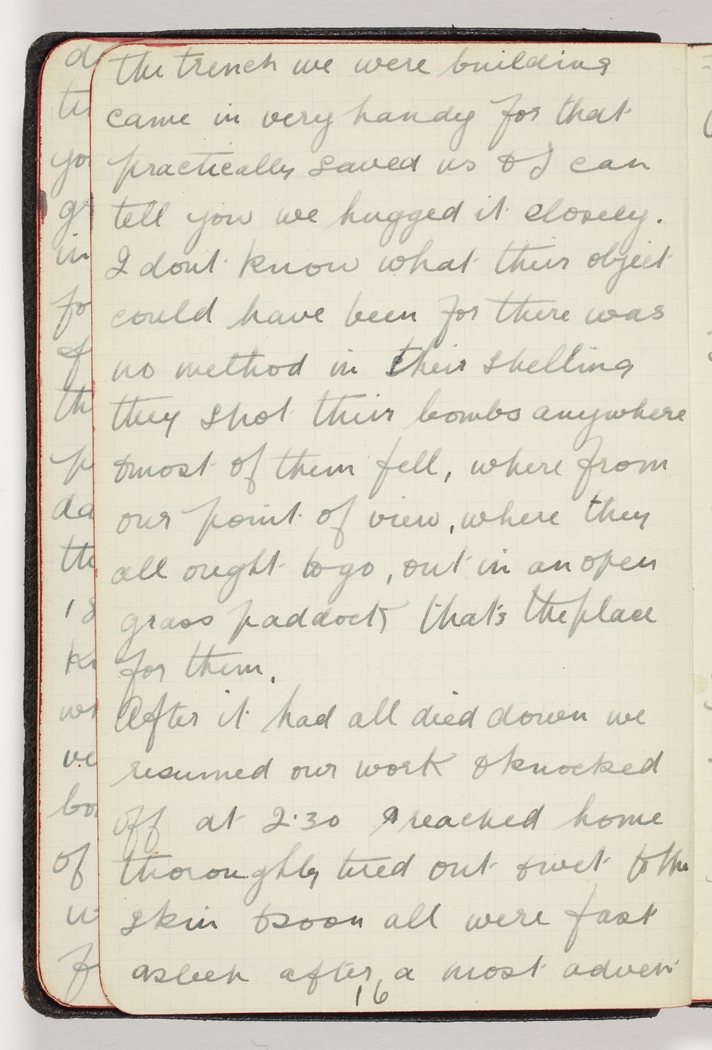 the trench we were building
came in very handy for that
practically saved us & I can
tell you we hugged it closely.
I dont know what their object
could have been for there was
no method in their shelling
they shot their bombs anywhere
& most of them fell, where from
our point of view, where they
all ought to go, out in an open
grass paddock that's the place
for them.
After it had all died down we
resumed our work & knocked
off at 2.30 & reached home
thoroughly tired out & wet to the
skin & soon all were fast
asleep after a most adven
16